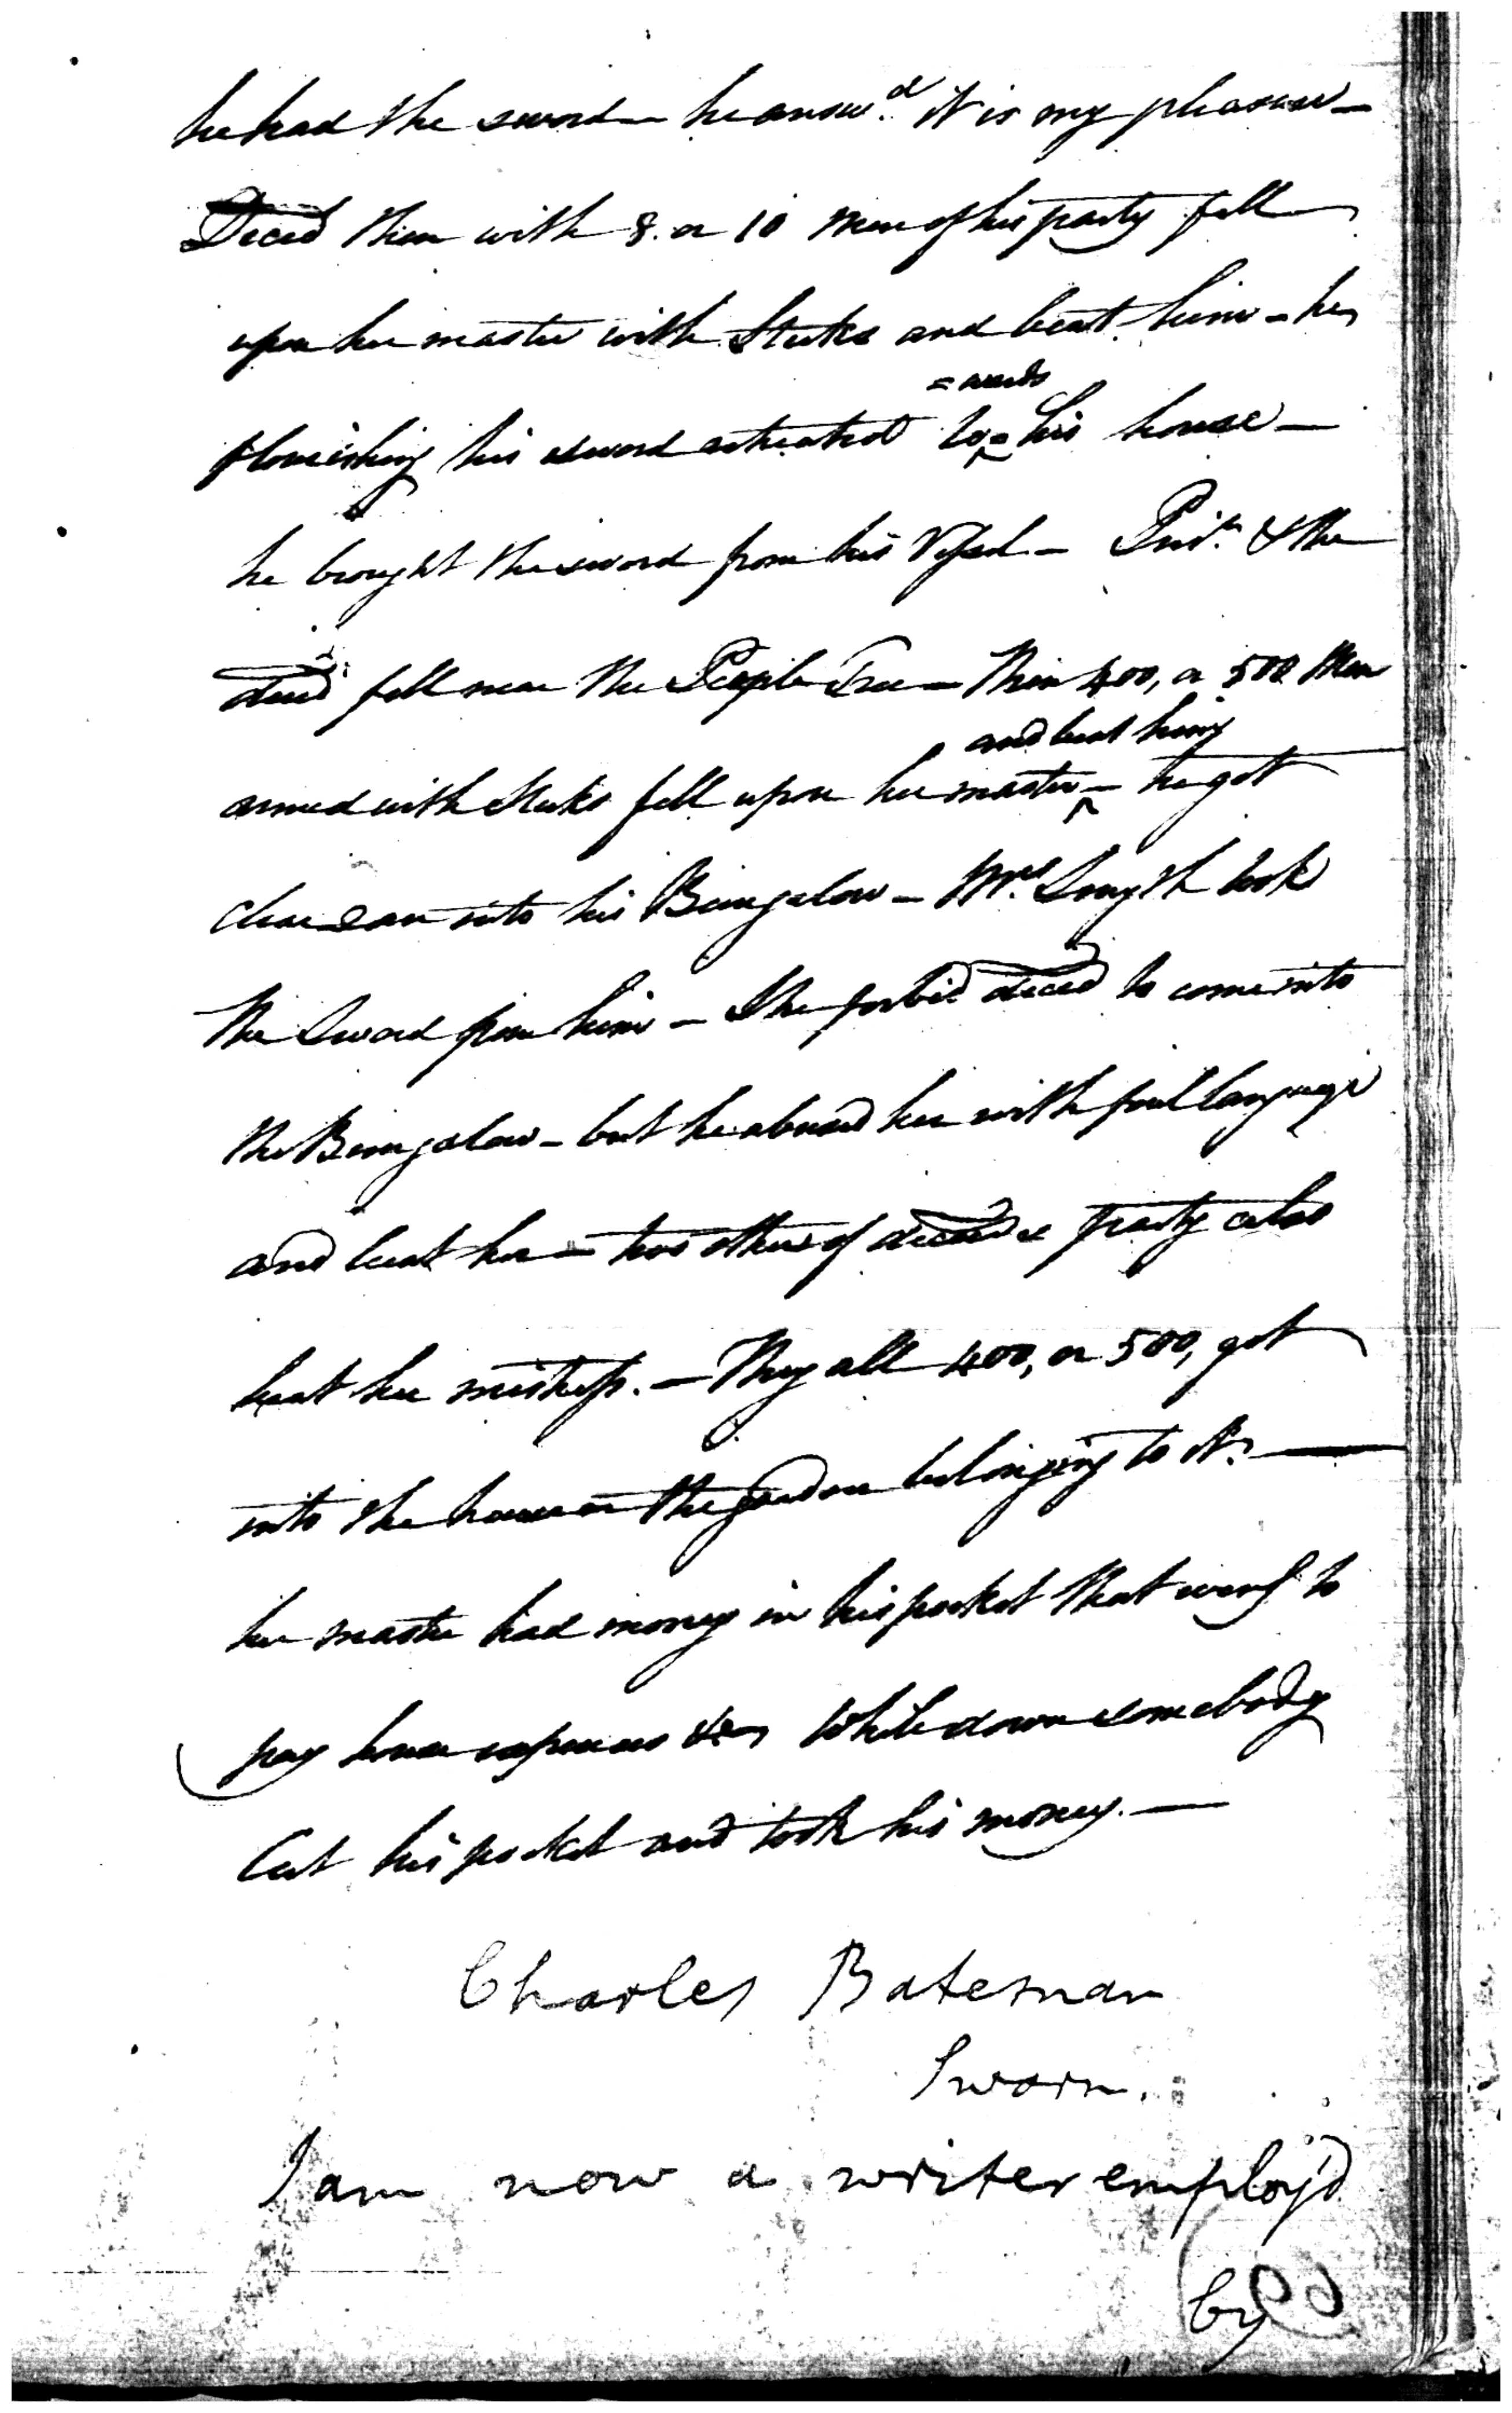 he had the sword – he answ.d it is my pleasure –
Deced then with 8. or 10 men of his party fell
upon her master with Sticks and beat him – he
flourishing his sword retreated to=wards his house –
he brought the sword from his Vessel – Pris.r & the
deced fell near the Peeple Tree – Then 400, or 500 Men
armed with sticks fell upon her master – and beat him he got
clear ran into his Bungalow – Mrs. Smyth took
the Sword from him – She forbid deced to come into
the Bungalow – but he abused her with foul language
and beat her – two others of deceds party also
beat her mistress. – They all 400, or 500, got
into the house or the garden belonging to it. –
her master had money in his pocket that went to
pay house expences &c, While down somebody
Cut his pocket and took his money. –
Charles Bateman
Sworn.
I am now a writer employ'd
by